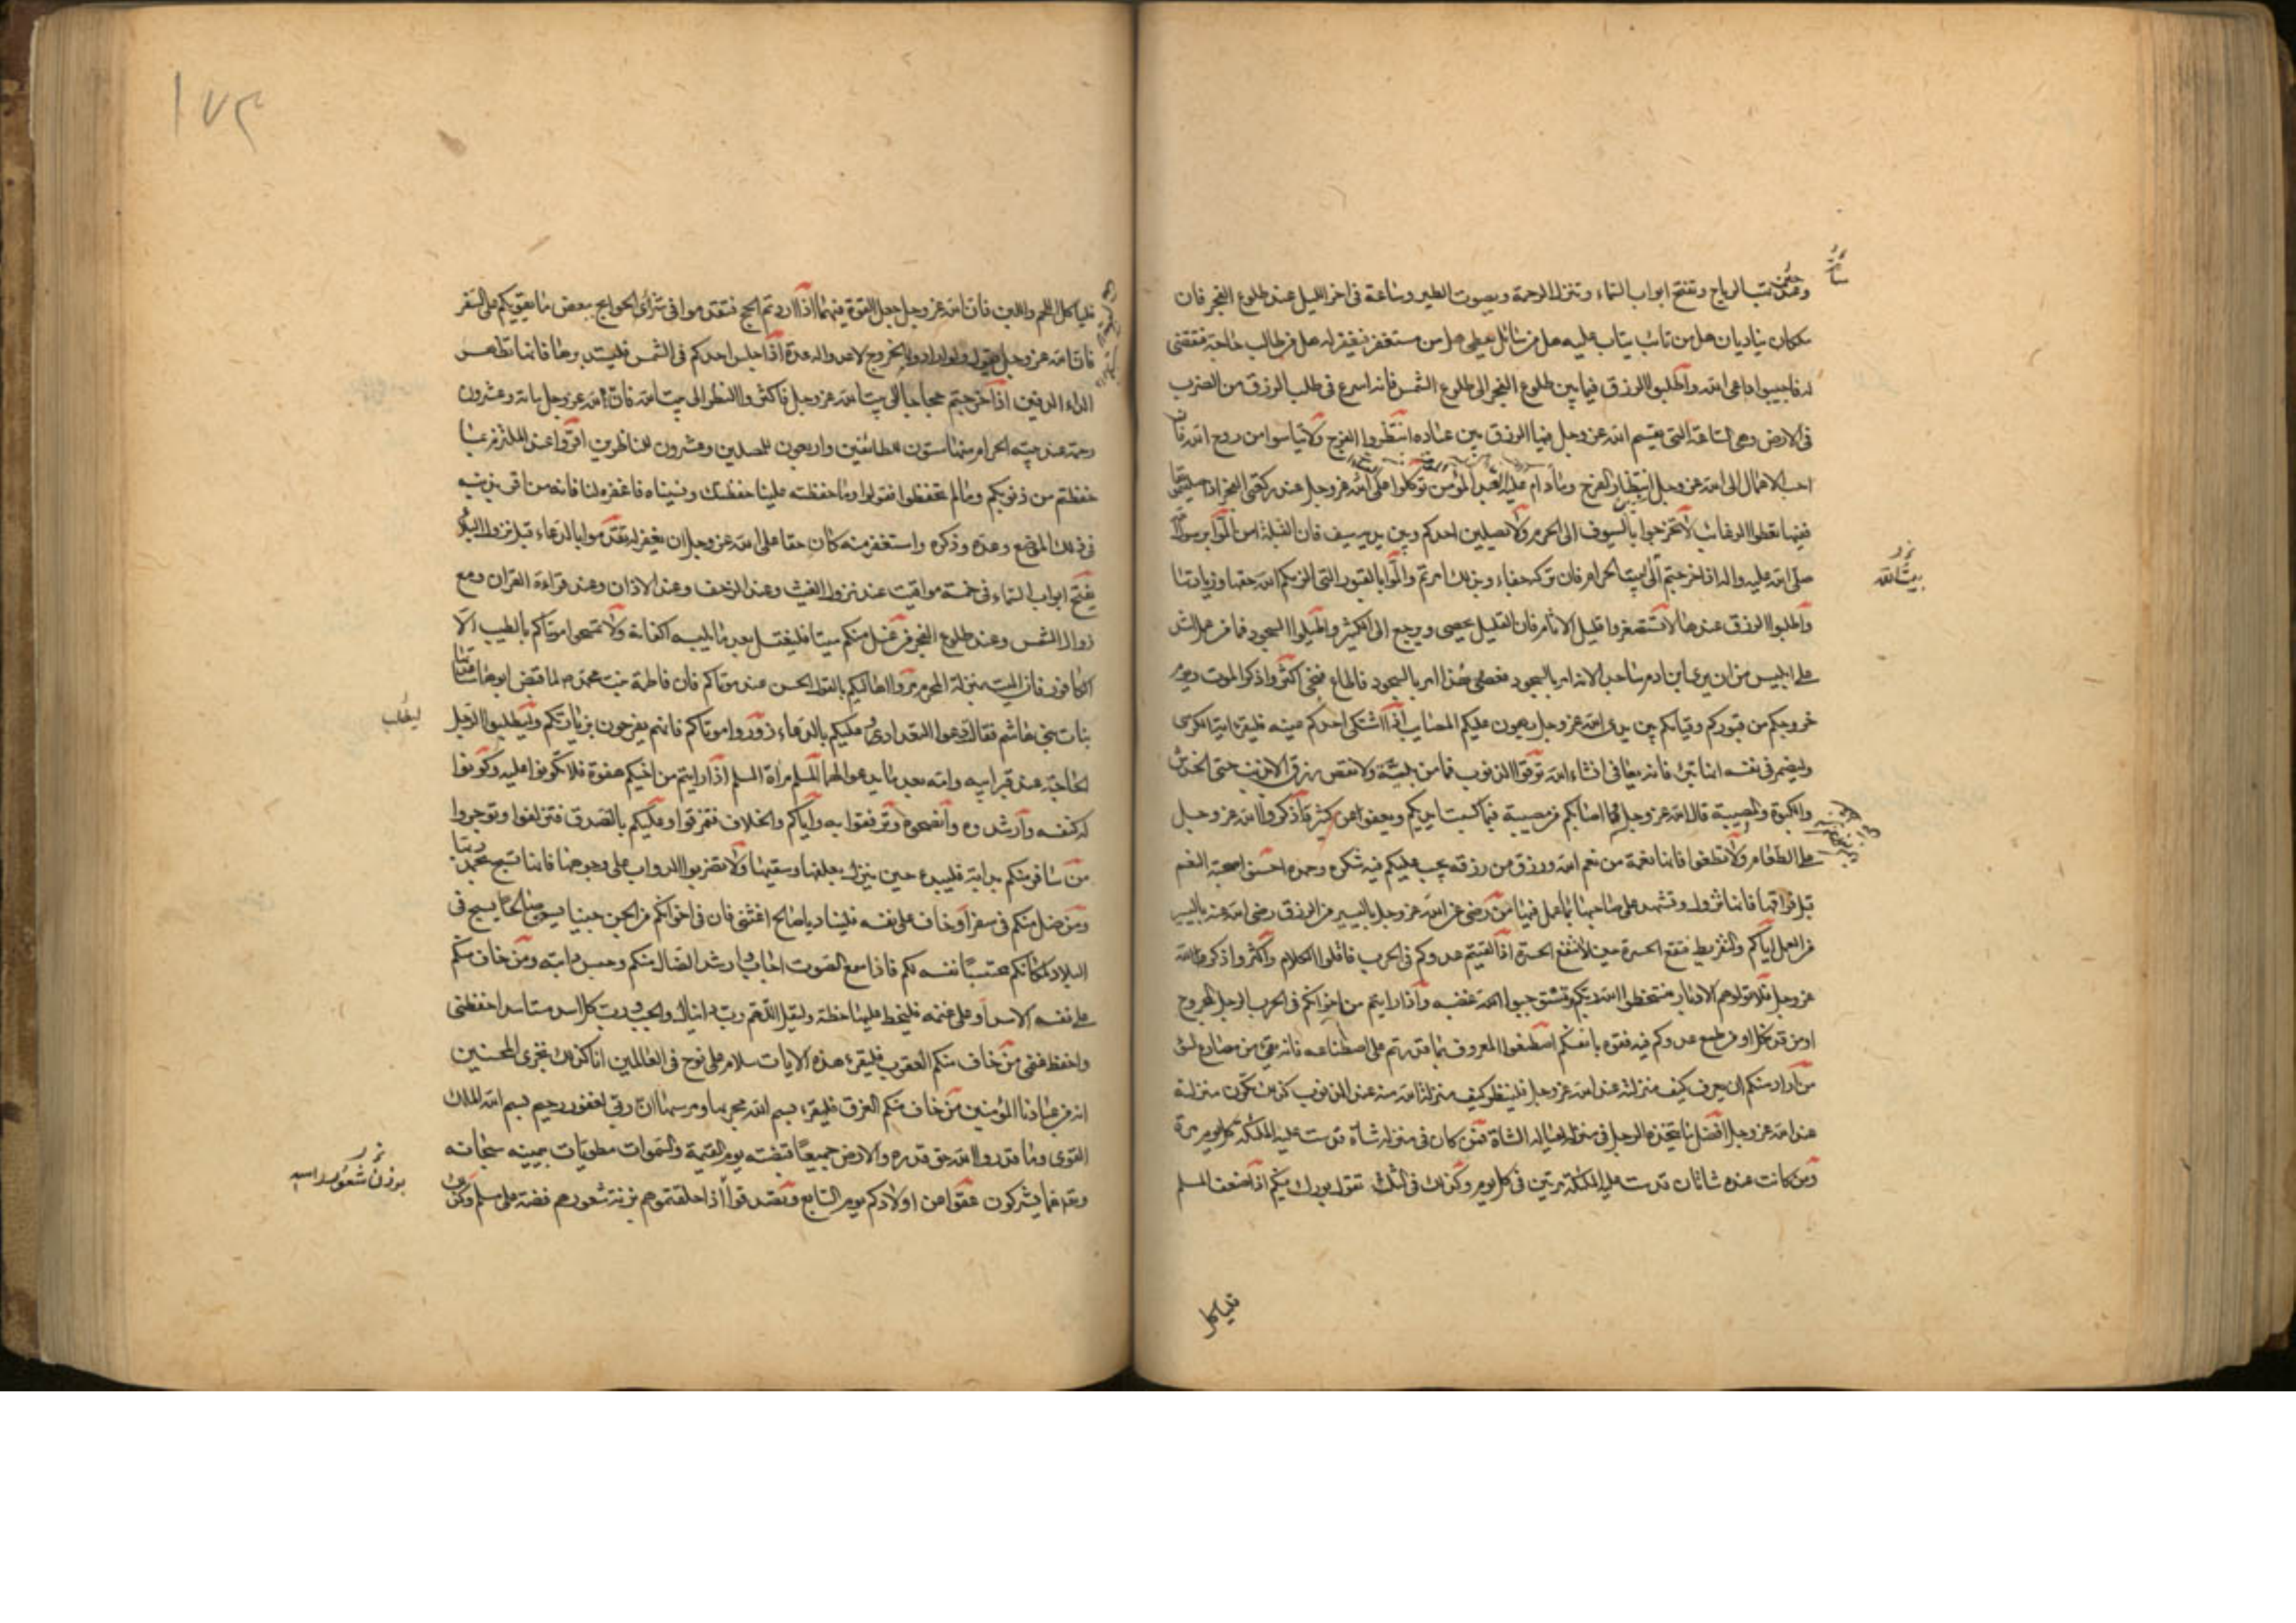 وعند حين تهب الرياح وتفتح ابواب السماء وتنزل الرحمة ويصوت الطير وساعة فى اخر الليل عند طلوع الفجر فان
ملكان يناديان هل من تائب يتاب عليه هل من سائل يعطى هل من مستغفر فيغفر له هل من طالب حاجة فتقضى
له فاجيبوا داعى الله واطلبوا الرزق فيما بين طلوع الفجر الى طلوع الشمس فانه اسرع فى طلب الرزق من الضرب
فى الارض وهى الساعة التى يقسم الله عز وجل فيها الرزق بين عباده انتظروا الفرج ولا تياسوا من روح الله فان
احب الاعمال الى الله عز وجل انتظار الفرج وما دام عليه العبد المؤمن توكلوا على الله عز وجل عند ركعتى الفجر اذا صليتموها
ففيها تعطوا الرغائب لا تخرجوا بالسيوف الى الحرم ولا يصلين احدكم وبين يديه سيف فان القبلة امن المّوا برسول الله
صلى الله عليه واله اذا خرجتم الى بيت الحرام فان تركه جفاء وبذلك امرتم والمّوا بالقبور التى الزمكم الله حقها وزيارتها
واطلبوا الرزق عندها لا تستصغروا قليل الاثام فان القليل يحصى ويرجع الى الكثير واطيلوا السجود فما من عمل اشد
على ابليس من ان يرى ابن ادم ساجدا لانه امر بالسجود فعصى وهذا امر بالسجود فاطاع فنجى اكثروا ذكر الموت ويوم
خروجكم من قبوركم وقيامكم بين يدى الله عز وجل يهون عليكم المصايب اذا اشتكى احدكم عينه فليقرء اية الكرسى
وليضمر فى نفسه انها تبرء فانه يعافى انشاء الله توقوا الذنوب فما من بلية ولا نقص رزق الا بذنب حتى الخدش
والكبوة والمصيبة قال الله عز وجل ما اصابكم من مصيبة فبما كسبت ايديكم ويعفوا عن كثير اذكروا الله عز وجل
على الطعام ولا تطغوا فانها نعمة من نعم الله ورزق من رزقه يجب عليكم فيه شكره وحمده احسنوا صحبة النعم
قبل فراقها فانها تزول وتشهد على صاحبها بما عمل فيها من رضى عن الله عز وجل باليسير من الرزق رضى الله عنه باليسير
من العمل اياكم والتفريط فتقع الحسرة حين لا تنفع الحسرة اذا لقيتم عدوكم فى الحرب فاقلوا الكلام واكثروا ذكر الله
عز وجل ولا تولوهم الادبار فتسخطوا الله ربكم وتستوجبوا غضبه واذا رايتم من اخوانكم فى الحرب الرجل المجروح
او من قد نكل او من طمع عدوكم فيه فقوه بانفسكم اصطنعوا المعروف بما قدرتم على اصطناعه فانه يقى من مصارع السوء
من اراد منكم ان يعرف كيف منزلته عند الله عز وجل فلينظر كيف منزلة الله منه عند الذنوب كذلك تكون منزلته
عند الله عز وجل افضل ما يتخذه الرجل فى منزله لعياله الشاة فمن كان فى منزله شاة قدست عليه الملئكة كل يوم مرة
ومن كانت عنده شاتان قدست عليه الملئكة مرتين فى كل يوم وكذلك فى الثلث تقول بورك فيكم اذا ضعف المسلم
فلياكل
بيت الله
١٧٤
فلياكل اللحم واللبن فان الله عز وجل جعل القوة فيهما اذا اردتم الحج فتقدموا فى شرى الحوايج ببعض ما يقويكم على السفر
فان الله عز وجل يقول ولو ارادوا الخروج لاعدوا له عدة اذا جلس احدكم فى الشمس فليستدبرها فانها تظهر
الداء الدفين اذا خرجتم حجاجا الى بيت الله عز وجل فاكثروا النظر الى بيت الله فان لله عز وجل مائة وعشرون
رحمة عند بيته الحرام منها ستون للطائفين واربعون للمصلين وعشرون للناظرين اقروا عند الملتزم بما
حفظتم من ذنوبكم وما لم تحفظوا فقولوا وما حفظته علينا حفظتك ونسيناه فاغفره لنا فانه من اقر بذنبه
فى ذلك الموضع وعده وذكره واستغفر منه كان حقا على الله عز وجل ان يغفر له تقدموا بالدعاء قبل نزول البلاء
يفتح ابواب السماء فى خمسة مواقيت عند نزول الغيث وعند الزحف وعند الاذان وعند قراءة القران ومع
زوال الشمس وعند طلوع الفجر من غسل منكم ميتا فليغتسل بعد ما يلبسه اكفانه ولا تمسحوا موتاكم بالطيب الا
الكافور فان الميت بمنزلة المحرم مروا اهاليكم بالقول الحسن عند موتاكم فان فاطمة بنت محمد ص لما قبض ابوها ساعدتها
بنات بنى هاشم فقال دعوا التعداد وعليكم بالدعاء زوروا موتاكم فانهم يفرحون بزيارتكم وليطلب الرجل
الحاجة عند قبر ابيه وامه بعد ما يدعو لهما المسلم مراة المسلم اذا رايتم من اخيكم هفوة فلا تكونوا عليه وكونوا
له كنفسه وارشدوه وانصحوه وترفقوا به واياكم والخلاف فتمزقوا وعليكم بالتصدق فتزلفوا وتوجروا
من سافر منكم بدابة فليبدء حين ينزل بعلفها وسقيها ولا تضربوا الدواب على وجوهها فانها تسبح بحمد ربها
ومن ضل منكم فى سفر او خاف على نفسه فليناد يا صالح اغثنى فان فى اخوانكم من الجن جنيا يسمى صالحا يسيح فى
البلاد لمكانكم محتسبا نفسه لكم فاذا سمع الصوت اجاب وارشد الضال منكم وحبس دابته ومن خاف منكم
على نفسه الاسد او على غنمه فليخط عليها خطة وليقل اللهم رب دانيال والجب رب كل اسد مستاسد احفظنى
واحفظ غنمى من خاف منكم العقرب فليقرء هذه الايات سلام على نوح فى العالمين انا كذلك نجزى المحسنين
انه من عبادنا المؤمنين من خاف منكم الغرق فليقرء بسم الله مجريها ومرسيها ان ربى لغفور رحيم بسم الله الملك
القوى وما قدروا الله حق قدره والارض جميعا قبضته يوم القيمة والسموات مطويات بيمينه سبحانه
وتعالى عما يشركون عقوا عن اولادكم يوم السابع وتصدقوا اذا حلقتموهم بزنة شعورهم فضة على مسلم وكذلك
ليطلب